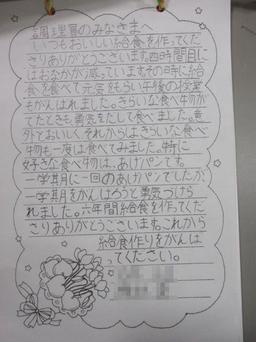 調理員のみなさまへ
いつもおいしい給食を作ってくだ
さりありがとうございます。四時間目に
はおなかが減っていますその時に給
食を食べて元気をもらい午後の授業
もがんばれました。きらいな食べ物が
でたときも勇気をだして食べました。意
外とおいしくそれからはきらいな食べ
物も一度は食べてみました。特に
好きな食べ物は、あげパンです。
一学期に一回のあげパンでしたが
一学期をがんばろうと勇気づけら
れました。六年間給食を作ってくだ
さりありがとうございます。これから
給食作りをがんば
ってください。